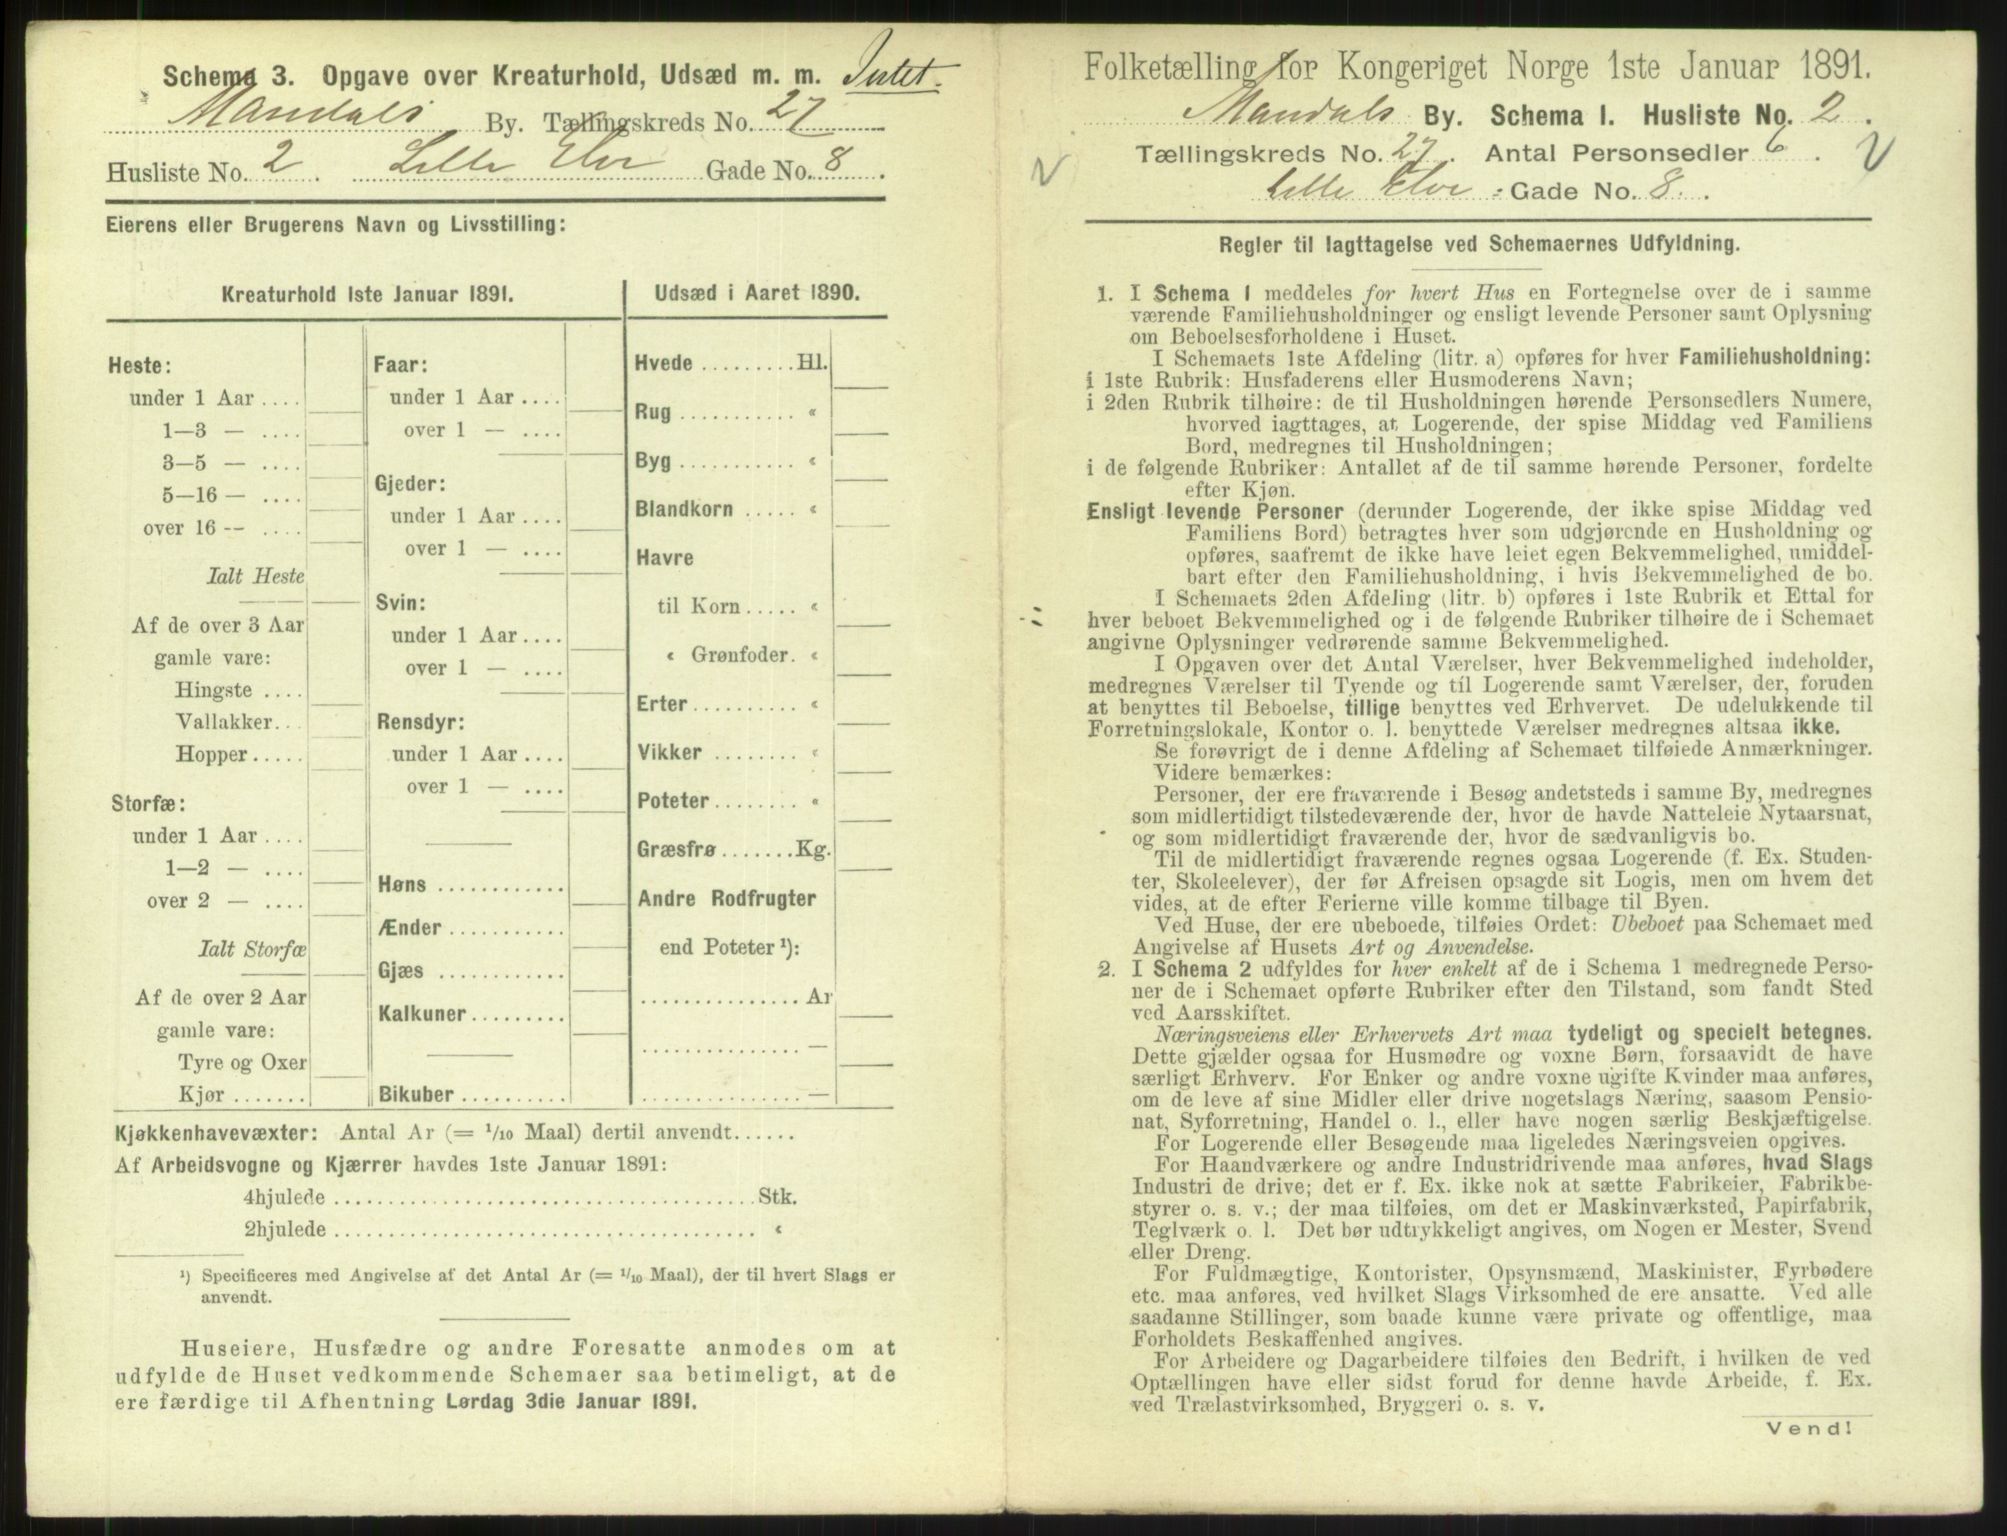 Schema 3. Opgave over Kreaturhold, Udsæd m. m. Intet.
Mandals By. Tællingskreds No. 27
Husliste No. 2 . Lille Elve Gade No. 8 .
Eierens eller Brugerens Navn og Livsstilling:
Kreaturhold 1ste Januar 1891.
Heste:
under 1 Aar ....
1—3 — ....
3—5 — ....
5—16 — ....
over 16 -- ....
Ialt Heste
Af de over 3 Aar
gamle vare:
Hingste ....
Vallakker...
Hopper.....
Storfæ:
under 1 Aar ....
1—2 — ....
over 2 — ....
Ialt Storfæ
Af de over 2 Aar
gamle vare:
Tyre og Oxer
Kjør .......
Faar:
under 1 Aar ....
over 1 — ....
Gjeder:
under 1 Aar ....
over 1 — ....
Svin:
under 1 Aar ....
over 1 — ....
Rensdyr:
under 1 Aar ....
over 1 — ....
Høns ............
Ænder ...........
Gjæs ............
Kalkuner.........
Bikuber ..........
Udsæd i Aaret 1890.
Hvede .........Hl.
Rug ........... «
Byg ........... «
Blandkorn ..... «
Havre
til Korn..... «
« Grønfoder. «
Erter.......... «
Vikker ........ «
Poteter........ «
Græsfrø .......Kg.
Andre Rodfrugter
end Poteter ¹):
............... Ar
............... —
............... —
Kjøkkenhavevæxter: Antal Ar (= 1/10 Maal) dertil anvendt......
Af Arbeidsvogne og Kjærrer havdes 1ste Januar 1891:
4hjulede ....................................... Stk.
2hjulede ....................................... «
¹) Specificeres med Angivelse af det Antal Ar (= 1/10 Maal), der til hvert Slags er
anvendt.
Huseiere, Husfædre og andre Foresatte anmodes om at
udfylde de Huset vedkommende Schemaer saa betimeligt, at de
ere færdige til Afhentning Lørdag 3die Januar 1891.
Folketælling for Kongeriget Norge 1ste Januar 1891.
Mandals By. Schema I. Husliste No. 2 .
Tællingskreds No. 27 . Antal Personsedler 6 .
Lille Elve - Gade No. 8 .
Regler til Iagttagelse ved Schemaernes Udfyldning.
1. I Schema 1 meddeles for hvert Hus en Fortegnelse over de i samme
værende Familiehusholdninger og ensligt levende Personer samt Oplysning
om Beboelsesforholdene i Huset.
I Schemaets 1ste Afdeling (litr. a) opføres for hver Familiehusholdning:
i 1ste Rubrik: Husfaderens eller Husmoderens Navn;
i 2den Rubrik tilhøire: de til Husholdningen hørende Personsedlers Numere,
hvorved iagttages, at Logerende, der spise Middag ved Familiens
Bord, medregnes til Husholdningen;
i de følgende Rubriker: Antallet af de til samme hørende Personer, fordelte
efter Kjøn.
Ensligt levende Personer (derunder Logerende, der ikke spise Middag ved
Familiens Bord) betragtes hver som udgjørende en Husholdning og
opføres, saafremt de ikke have leiet egen Bekvemmelighed, umiddel-
bart efter den Familiehusholdning, i hvis Bekvemmelighed de bo.
I Schemaets 2den Afdeling (litr. b) opføres i 1ste Rubrik et Ettal for
hver beboet Bekvemmelighed og i de følgende Rubriker tilhøire de i Schemaet
angivne Oplysninger vedrørende samme Bekvemmelighed.
I Opgaven over det Antal Værelser, hver Bekvemmelighed indeholder,
medregnes Værelser til Tyende og til Logerende samt Værelser, der, foruden
at benyttes til Beboelse, tillige benyttes ved Erhvervet. De udelukkende til
Forretningslokale, Kontor o. l. benyttede Værelser medregnes altsaa ikke.
Se forøvrigt de i denne Afdeling af Schemaet tilføiede Anmærkninger.
Videre bemærkes:
Personer, der ere fraværende i Besøg andetsteds i samme By, medregnes
som midlertidigt tilstedeværende der, hvor de havde Natteleie Nytaarsnat,
og som midlertidigt fraværende der, hvor de sædvanligvis bo.
Til de midlertidigt fraværende regnes ogsaa Logerende (f. Ex. Studen-
ter, Skoleelever), der før Afreisen opsagde sit Logis, men om hvem det
vides, at de efter Ferierne ville komme tilbage til Byen.
Ved Huse, der ere ubeboede, tilføies Ordet: Ubeboet paa Schemaet med
Angivelse af Husets Art og Anvendelse.
2. I Schema 2 udfyldes for hver enkelt af de i Schema 1 medregnede Perso-
ner de i Schemaet opførte Rubriker efter den Tilstand, som fandt Sted
ved Aarsskiftet.
Næringsveiens eller Erhvervets Art maa tydeligt og specielt betegnes.
Dette gjælder ogsaa for Husmødre og voxne Børn, forsaavidt de have
særligt Erhverv. For Enker og andre voxne ugifte Kvinder maa anføres,
om de leve af sine Midler eller drive nogetslags Næring, saasom Pensio-
nat, Syforretning, Handel o. l., eller have nogen særlig Beskjæftigelse.
For Logerende eller Besøgende maa ligeledes Næringsveien opgives.
For Haandværkere og andre Industridrivende maa anføres, hvad Slags
Industri de drive; det er f. Ex. ikke nok at sætte Fabrikeier, Fabrikbe-
styrer o. s. v.; der maa tilføies, om det er Maskinværksted, Papirfabrik,
Teglværk o. l. Det bør udtrykkeligt angives, om Nogen er Mester, Svend
eller Dreng.
For Fuldmægtige, Kontorister, Opsynsmænd, Maskinister, Fyrbødere
etc. maa anføres, ved hvilket Slags Virksomhed de ere ansatte. Ved alle
saadanne Stillinger, som baade kunne være private og offentlige, maa
Forholdets Beskaffenhed angives.
For Arbeidere og Dagarbeidere tilføies den Bedrift, i hvilken de ved
Optællingen have eller sidst forud for denne havde Arbeide, f. Ex.
ved Trælastvirksomhed, Bryggeri o. s. v.
Vend!